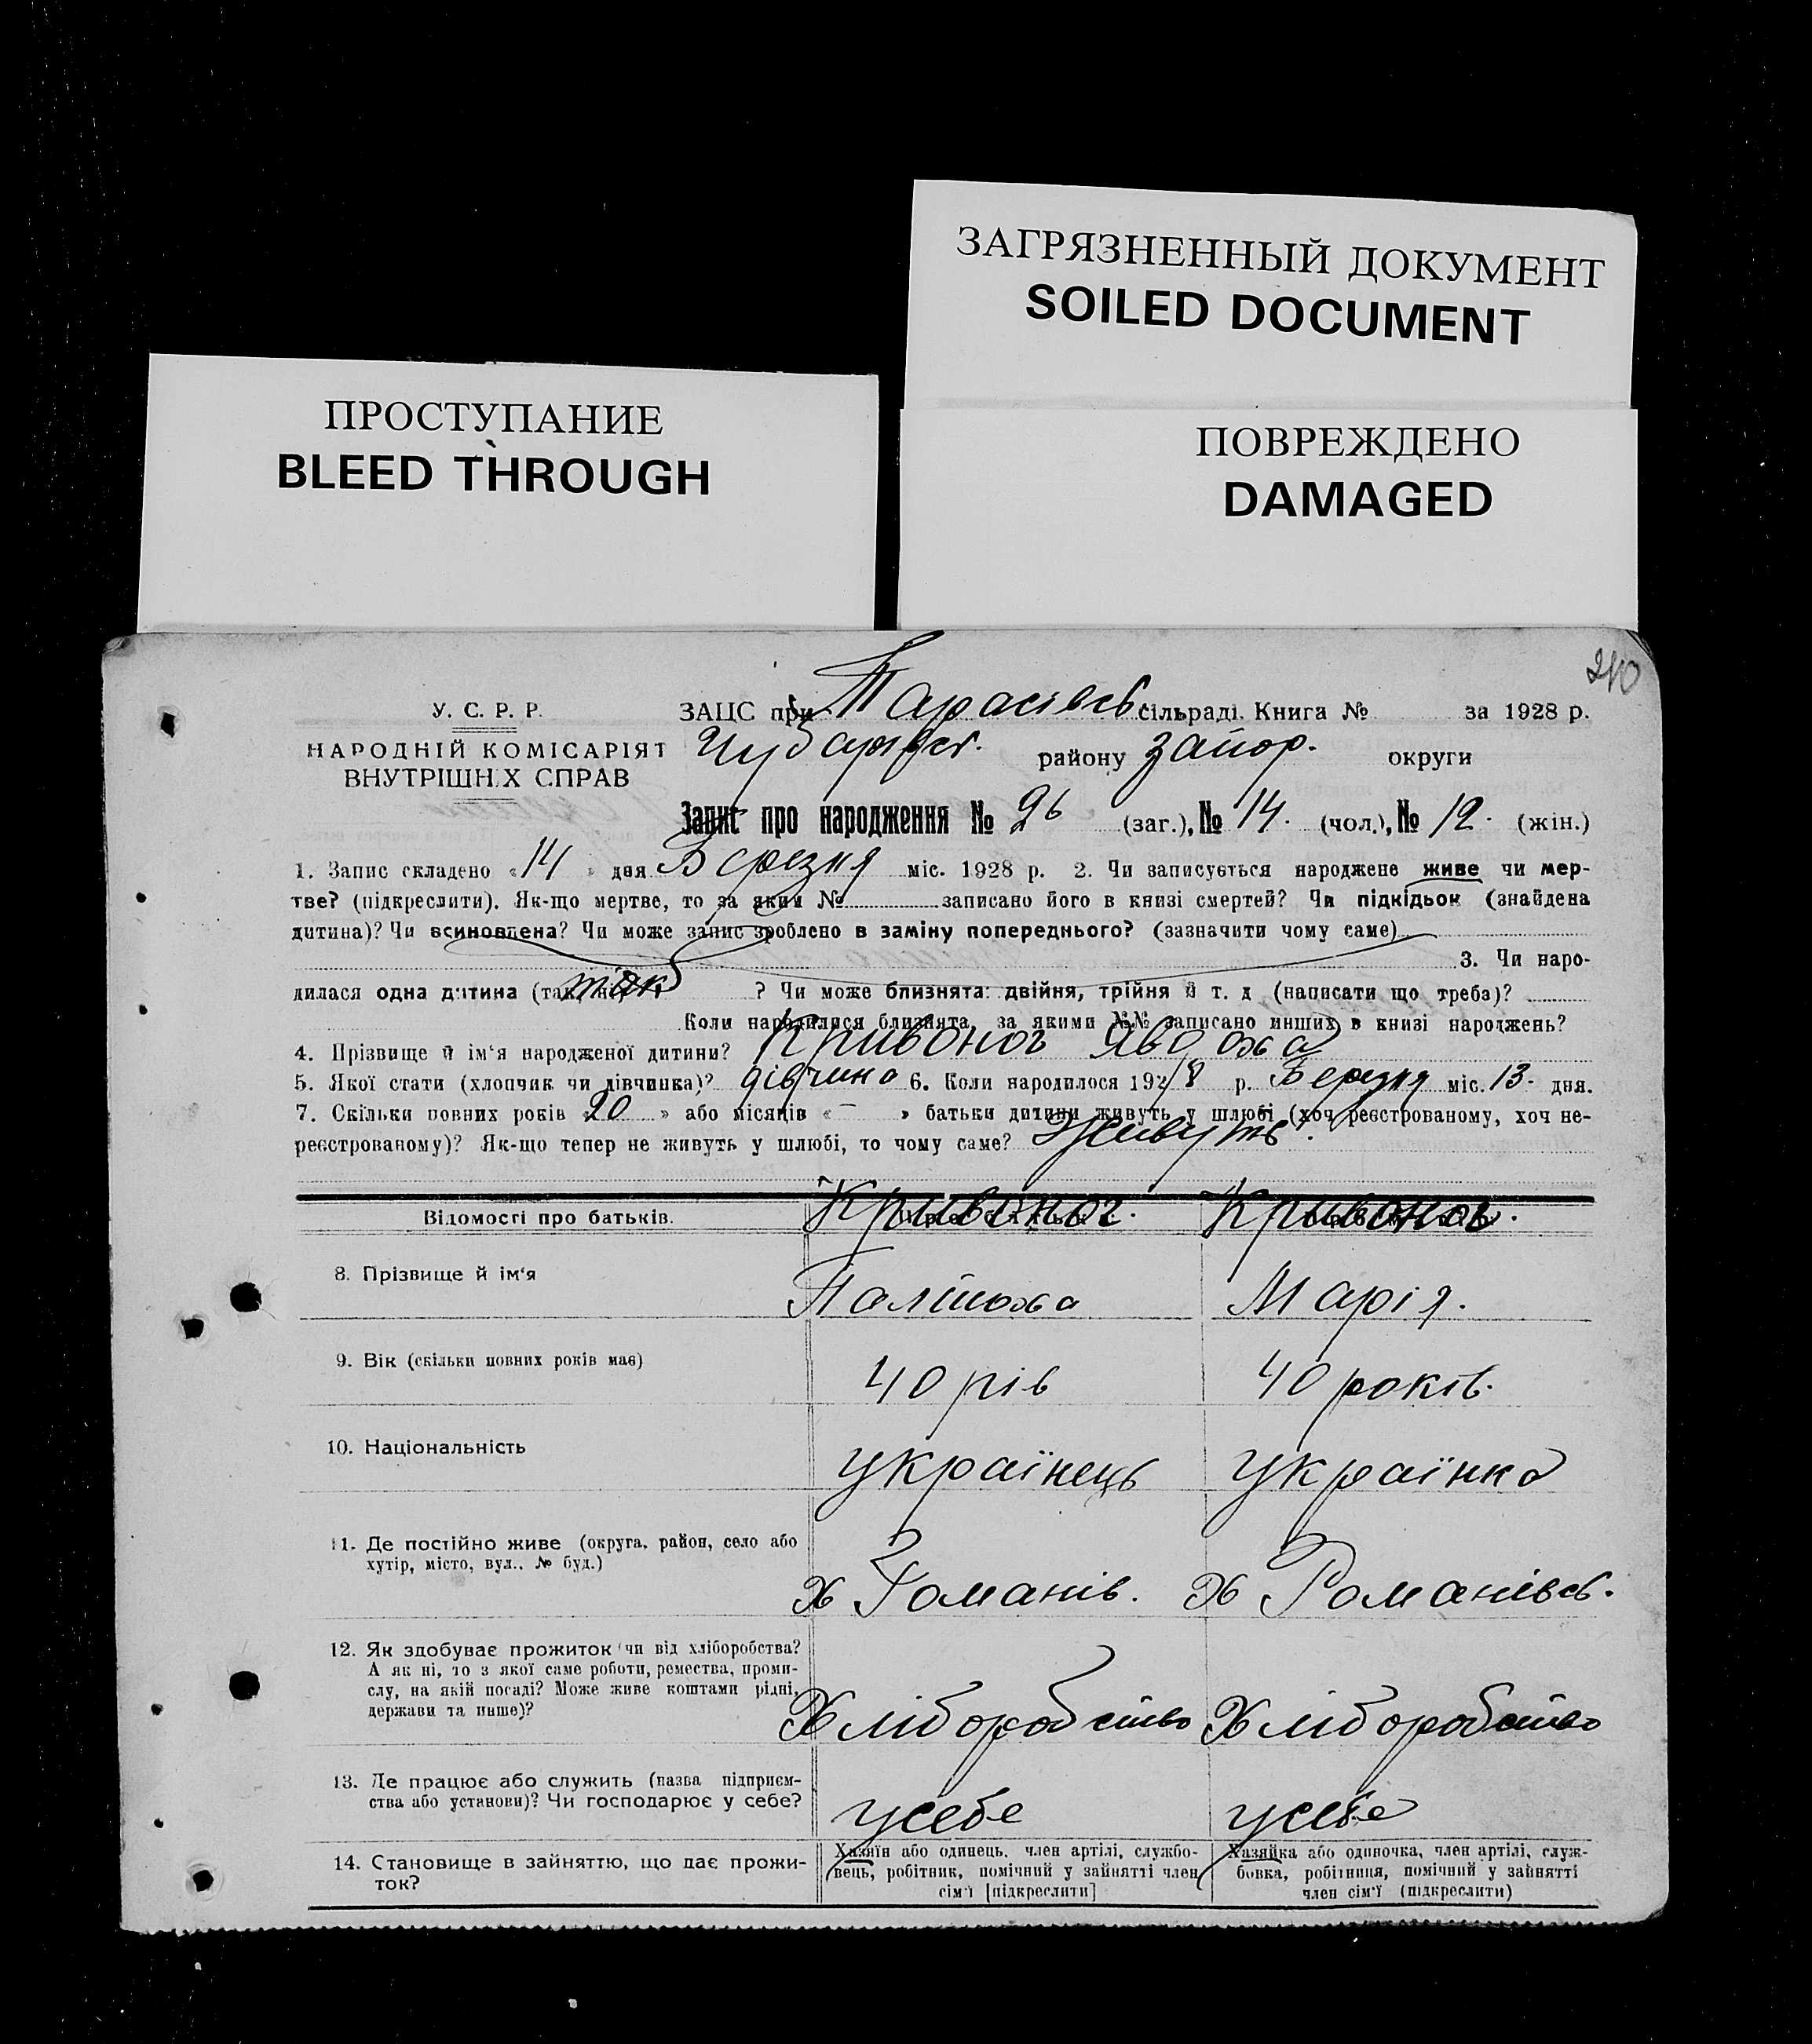 ЗАГРЯЗНЕННЫЙ ДОКУМЕНТ
SOILED DOCUMENT
ПРОСТУПАНИЕ
BLEED THROUGH
ПОВРЕЖДЕНО
DAMAGED
210
У. С. Р. Р.
НАРОДНІЙ КОМІСАРІЯТ
ВНУТРІШНІХ СПРАВ
ЗАЦС при Тарасівсь. сільраді. Книга № за 1928 р.
Чубарівсь. району Запор. округи
Запис про народження № 26 (заг.), № 14. (чол.), № 12. (жін.)
1. Запис складено «14» дня Березня міс. 1928 р. 2. Чи записується народжене живе чи мер-
тве? (підкреслити). Як-що мертве, то за яким № записано його в книзі смертей? Чи підкідьок (знайдена
дитина)? Чи всиновлена? Чи може запис зроблено в заміну попереднього? (зазначити чому саме)
3. Чи наро-
дилася одна дитина (так, ні) так ? Чи може близнята: двійня, трійня й т. д (написати що треба)?
Коли народилися близнята, за якими №№ записано инших в книзі народжень?
4. Прізвище й ім'я народженої дитини? Кривоног Явдоха
5. Якої стати (хлопчик чи дівчинка)? дівчина 6. Коли народилося 1928 р. Березня міс. 13. дня.
7. Скільки повних років «20» або місяців «–» батьки дитини живуть у шлюбі (хоч реєстрованому, хоч не-
реєстрованому)? Як-що тепер не живуть у шлюбі, то чому саме? Живуть.
Відомості про батьків. Кривоног. Кривоног.
8. Прізвище й ім'я Марія.
9. Вік (скільки повних років має) 40 рів 40 років.
10. Національність українець українка
11. Де постійно живе (округа, район, село або
хутір, місто, вул., № буд.)
Х Романів. Х Романівсь.
12. Як здобуває прожиток чи від хліборобства?
А як ні, то з якої саме роботи, ремества, проми-
слу, на якій посаді? Може живе коштами рідні,
держави та инше)?
Хліборобство Хліборобство
13. Де працює або служить (назва підприєм-
ства або установи)? Чи господарює у себе?
усебе усебе
14. Становище в зайняттю, що дає прожи-
ток?
Хазяїн або одинець, член артілі, службо-
вець, робітник, помічний у зайнятті член
сім'ї [підкреслити]
Хазяйка або одиночка, член артілі, служ-
бовка, робітниця, помічний у зайнятті
член сім'ї (підкреслити)